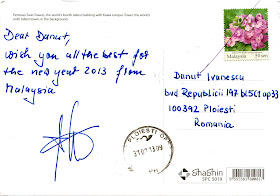 Famous Twin Towers, the world's fourth tallest building with Kuala Lumpur Tower the world's
sixth tallest tower in the background.
Malaysia
50 sen
Dear Danut,
wish you all the best for
the new year 2013 from
Malaysia
PLOIESTI
31 01 13 09
Danut Ivanescu
bvd Republicii 197 bl 5C1 ap33
100392 Ploiesti
Romania
ShaShin
SPC 5019